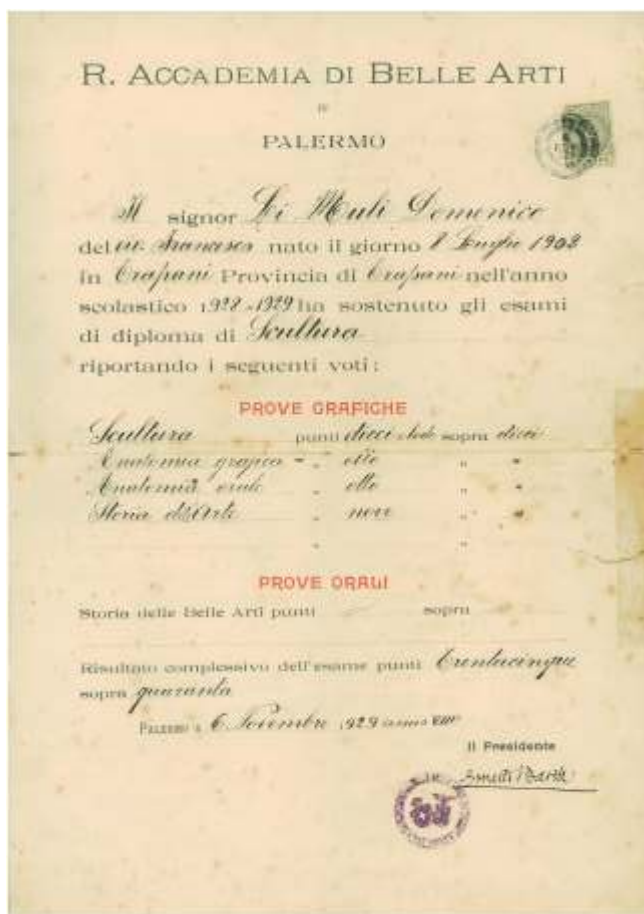 R. ACCADEMIA DI BELLE ARTI
IN
PALERMO
Il signor Li Muli Domenico
del fu Francesco nato il giorno 8 Luglio 1902
in Trapani Provincia di Trapani nell'anno
scolastico 1928-1929 ha sostenuto gli esami
di diploma di Scultura
riportando i seguenti voti:
PROVE GRAFICHE
Scultura punti dieci e lode sopra dieci
Anatomia grafica " otto " "
Anatomia orale " otto " "
Storia dell'Arte " nove " "
" "
PROVE ORALI
Storia delle Belle Arti punti sopra
Risultato complessivo dell'esame punti trentacinque
sopra quaranta
PALERMO 6 Novembre 1929 anno VIII
Il Presidente